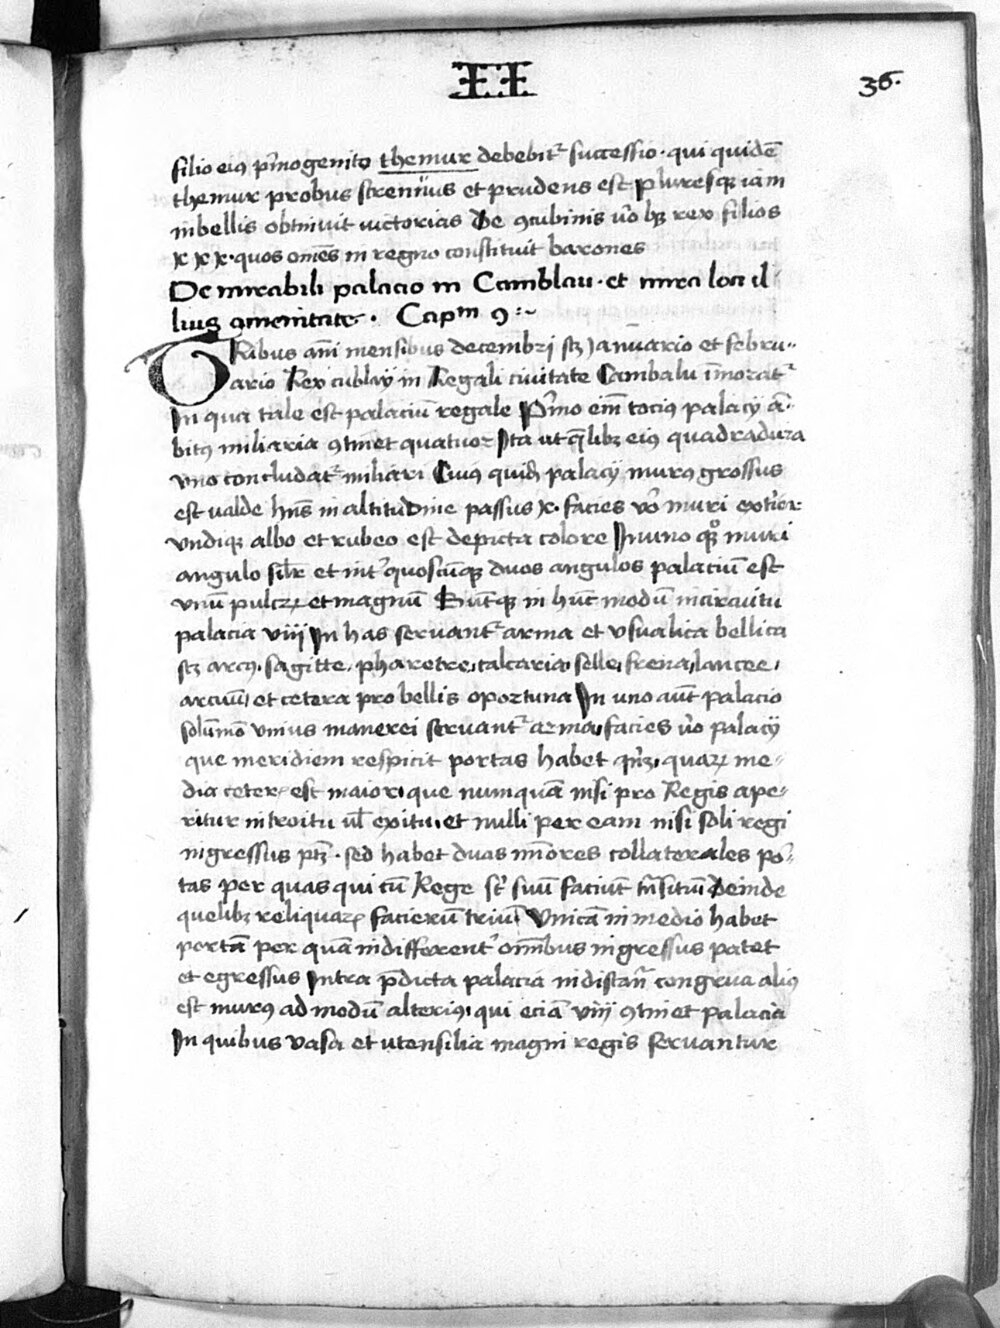 II
36.
filio eiꝰ p̄mogenito themur debebitr̄ successio · qui quidē
themur probus strenuus et prudens est pluresqꝫ iam
in bellis obtinuit victorias De ꝯcubinis v̄o bꝫ rex filios
x x x · quos om̄es in regno constituit barones
De mirabili palacio in Cambalu · et mira loci il
lius amenitate · Capᵐ 9 :~
TRibus anni mensibus decembri sꝫ Januario et febru
ario Rex cublay in Regali ciuitate Cambalu īmoratr̄
In qua tale est palaciū regale P̄mo em̄ tociꝰ palacij ā
bitꝰ miliaria ꝯtinet quatuor Ita ut q̄libꝫ eiꝰ quadradura
vno concludatr̄ miliari Cuiꝰ quidē palacij murꝰ grossus
est ualde hn̄s in altitudine passus x · facies v̄o muri exterior
vndiqꝫ albo et rubeo est depicta colore In uno qͦqꝫ muri
angulo sil̄r et int̄ quoscūqꝫ duos angulos palaciū est
vnū pulcꝝ et magnū Suntqꝫ in hūc modū in circuitu
palacia viij In has seruantr̄ arma et vsualia bellica
sꝫ arcꝰ · sagitte, pharetre, calcaria, selle, frena, lancee,
arcuū, et cetera pro bellis oportuna In uno aūt palacio
solūmo vnius manerei seruantr̄ arma, facies v̄o palacij
que meridiem respicit portas habet qn̄qꝫ, quaꝝ me
dia ceteꝝ est maior, que numquā nisi pro Regis ape
ritur introitu ul̄ exitu, et nulli per eam nisi soli regi
ingressus ptꝫ · sed habet duas minores collaterales por
tas per quas qui cū Rege st̄ suū faciūt trāsitū Deinde
quelibꝫ reliquaꝝ facierū triū Vnicā in medio habet
portā per quā indifferentr̄ om̄ibus ingressus patet
et egressus Intra p̄dicta palacia in distan̄ congrua aliꝰ
est murꝰ ad modū alteriꝰ, qui eciā viij ꝯtinet palacia
In quibus vasa et utensilia magni regis seruantur